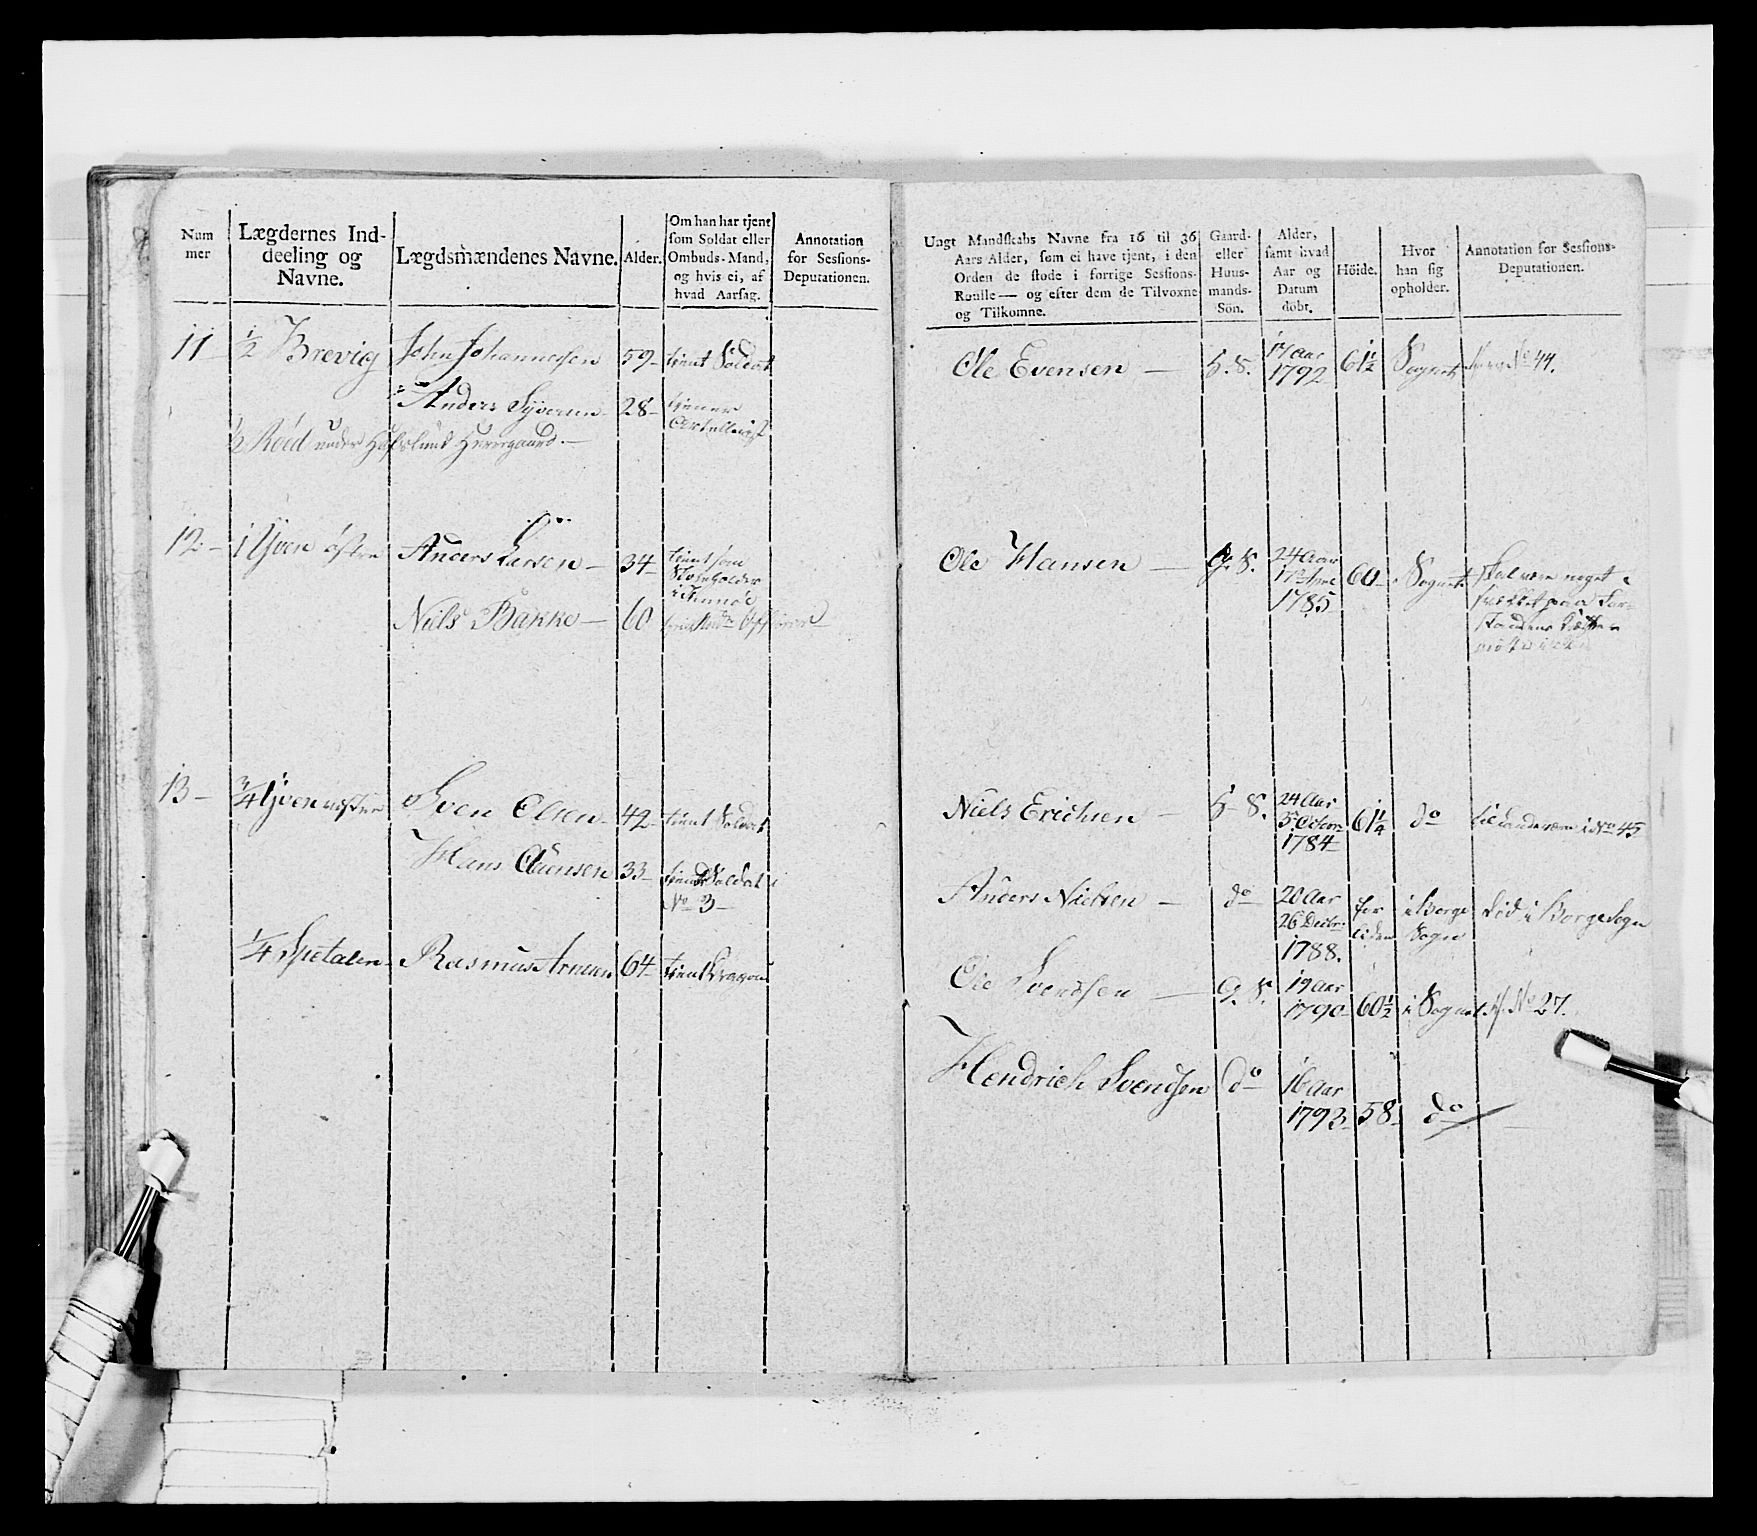 Num
mer
Lægdernes Ind-
deeling og
Navne.
Lægdsmændenes Navne.
Alder.
Om han har tjent
som Soldat eller
Ombuds-Mand,
og hvis ei, af
hvad Aarsag.
Annotation
for Sessions-
Deputationen.
11 ½ Brevig John Johannesen 59 tient Soldat
Anders Syversen 28 tjener
½ Röed under Hafslund Herregaard
12 1 Yven östre Anders Larsen 34 tient som
Niels Bakke 60
13 ¾ Yven vestre Sven Olsen 42 tient Soldat
Hans Clausen 33 tiener Soldat
No 3
¼ Spetalen Rasmus Arnesen 64 tient Dragon
Ungt Mandskabs Navne fra 16 til 36
Aars Alder, som ei have tjent, i den
Orden de stode i forrige Sessions-
Roulle — og efter dem de Tilvoxne
og Tilkomne.
Gaard-
eller
Huus-
mands-
Sön.
Alder,
samt hvad
Aar og
Datum
döbt.
Höide.
Hvor
han sig
opholder.
Annotation for Sessions-
Deputationen.
Ole Evensen H. S. 17 Aar
1792 61½ Sognet No 44.
Ole Hansen G. S. 24 Aar
1785 60 Sognet skal være noget
Niels Erichsen H. S. 24 Aar
5 Octbr
1784 61¼ do til Landeværn i No 45
Anders Nielsen do 20 Aar
26 Decbr
1788. i Borge
Sogn död i Borge Sogn
Ole Svendsen G. S. 19 Aar
1790 60½ i Sognet No 27.
Hendrich Svendsen do 16 Aar
1793 58 do